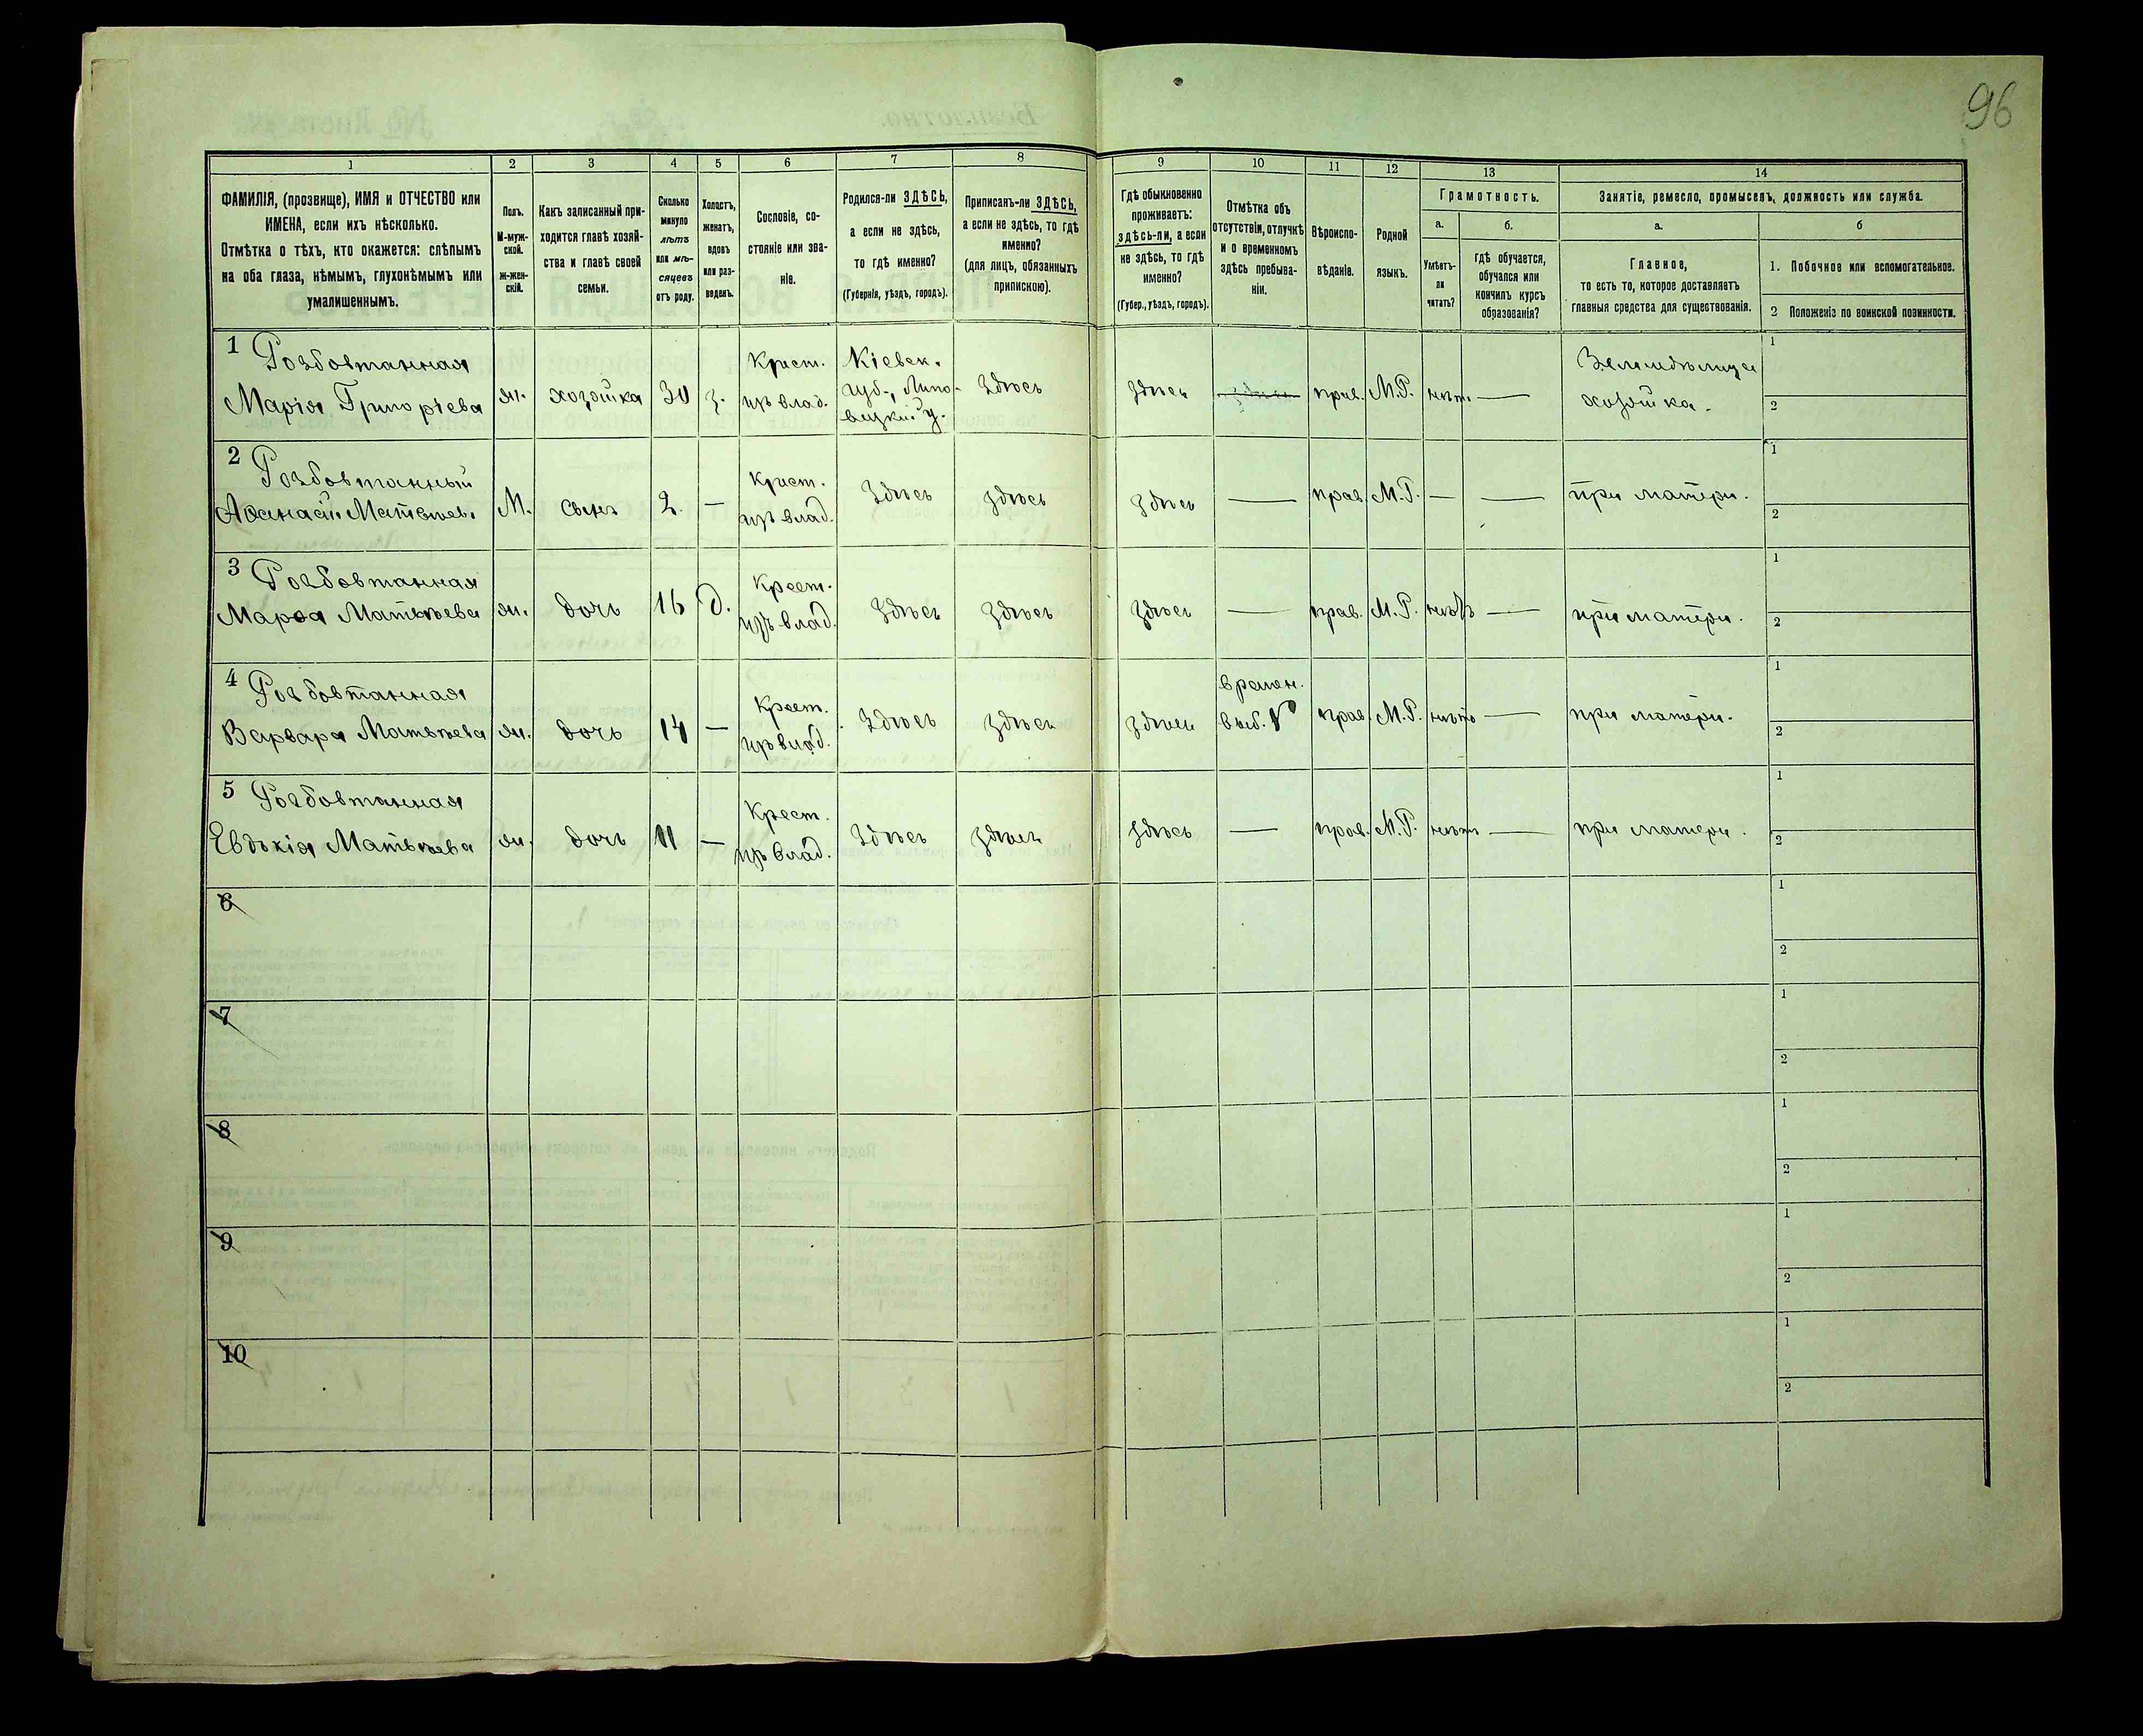 96
1
2
3
4
5
6
7
8
9
10
11
12
13
14
ФАМИЛІЯ, (прозвище), ИМЯ и ОТЧЕСТВО или
ИМЕНА, если ихъ нѣсколько.
Отмѣтка о тѣхъ, кто окажется: слѣпымъ
на оба глаза, нѣмымъ, глухонѣмымъ или
умалишеннымъ.
Полъ.
М-муж-
ской.
Ж-жен-
скій.
Какъ записанный при-
ходится главѣ хозяй-
ства и главѣ своей
семьи.
Сколько
минуло
лѣтъ
или мѣ-
сяцевъ
отъ роду.
Холостъ,
женатъ,
вдовъ
или раз-
веденъ.
Сословіе, со-
стояніе или зва-
ніе.
Родился-ли ЗДѢСЬ,
а если не здѣсь,
то гдѣ именно?
(Губернія, уѣздъ, городъ).
Приписанъ-ли ЗДѢСЬ,
а если не здѣсь, то гдѣ
именно?
(для лицъ, обязанныхъ
припискою).
Гдѣ обыкновенно
проживаетъ:
здѣсь-ли, а если
не здѣсь, то гдѣ
именно?
(Губер., уѣздъ, городъ).
Отмѣтка объ
отсутствіи, отлучкѣ
и о временномъ
здѣсь пребыва-
ніи.
Вѣроиспо-
вѣданіе.
Родной
языкъ.
Грамотность.
а.
Умѣетъ-
ли
читать?
б.
гдѣ обучается,
обучался или
кончилъ курсъ
образованія?
Занятіе, ремесло, промыселъ, должность или служба.
а.
Главное,
то есть то, которое доставляетъ
главныя средства для существованія.
б
1. Побочное или вспомогательное.
2 Положеніе по воинской повинности.
1 Розбовтанная
Марія Григоріева
ж.
хозяйка
30
з.
Крест.
изъ влад.
Кіевск.
губ., Липо-
вецкій у.
Здѣсь
здѣсь
прав.
М.Р.
нѣтъ
—
Земледѣлица
хозяйка.
1
2
2 Розбовтанный
Аѳанасій Матвѣев.
М.
сынъ
2
—
Крест.
изъ влад.
Здѣсь
здѣсь
здѣсь
—
прав.
М.Р.
—
—
при матери.
1
2
3 Розбовтанная
Марѳа Матвѣева
ж.
дочь
16
д.
Крест.
изъ влад.
Здѣсь
здѣсь
здѣсь
—
прав.
М.Р.
нѣтъ
—
при матери.
1
2
4 Розбовтанная
Варвара Матвѣева
ж.
дочь
14
—
Крест.
изъ влад.
Здѣсь
здѣсь
здѣсь
времен.
выб.
прав.
М.Р.
нѣтъ
—
при матери.
1
2
5 Розбовтанная
Евдокія Матвѣева
ж.
дочь
11
—
Крест.
изъ влад.
Здѣсь
здѣсь
здѣсь
—
прав.
М.Р.
нѣтъ
—
при матери.
1
2
6
1
2
7
1
2
8
1
2
9
1
2
10
1
2